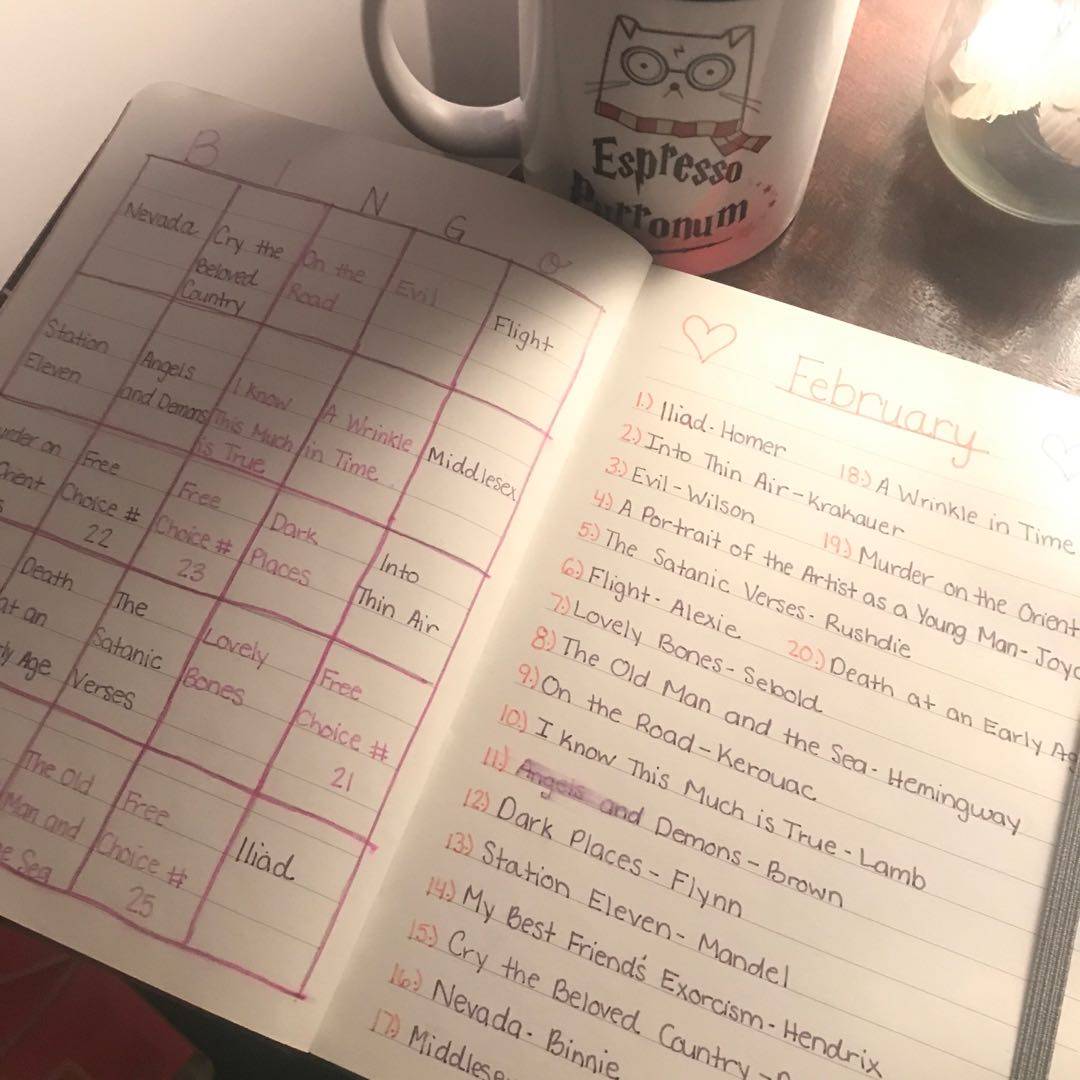 Espresso
Patronum
B I N G O
Nevada
Cry the
Beloved
Country
On the
Road
Evil
Flight
Station
Eleven
Angels
and Demons
I Know
This Much
is True
A Wrinkle
in Time
Middlesex
on
Free
Choice #
22
Free
Choice #
23
Dark
Places
Into
Thin Air
Death
at an
Age
The
Satanic
Verses
Lovely
Bones
Free
Choice #
21
The Old
Man and
Sea
Free
Choice #
25
Iliad
February
1.) Iliad - Homer
2.) Into Thin Air - Krakauer
3.) Evil - Wilson
4.) A Portrait of the Artist as a Young Man -
5.) The Satanic Verses - Rushdie
6.) Flight - Alexie
7.) Lovely Bones - Sebold
8.) The Old Man and the Sea - Hemingway
9.) On the Road - Kerouac
10.) I Know This Much is True - Lamb
11.) Angels and Demons - Brown
12.) Dark Places - Flynn
13.) Station Eleven - Mandel
14.) My Best Friend's Exorcism - Hendrix
15.) Cry the Beloved Country -
16.) Nevada - Binnie
17.)
18.) A Wrinkle in Time
19.) Murder on the Orient
20.) Death at an Early